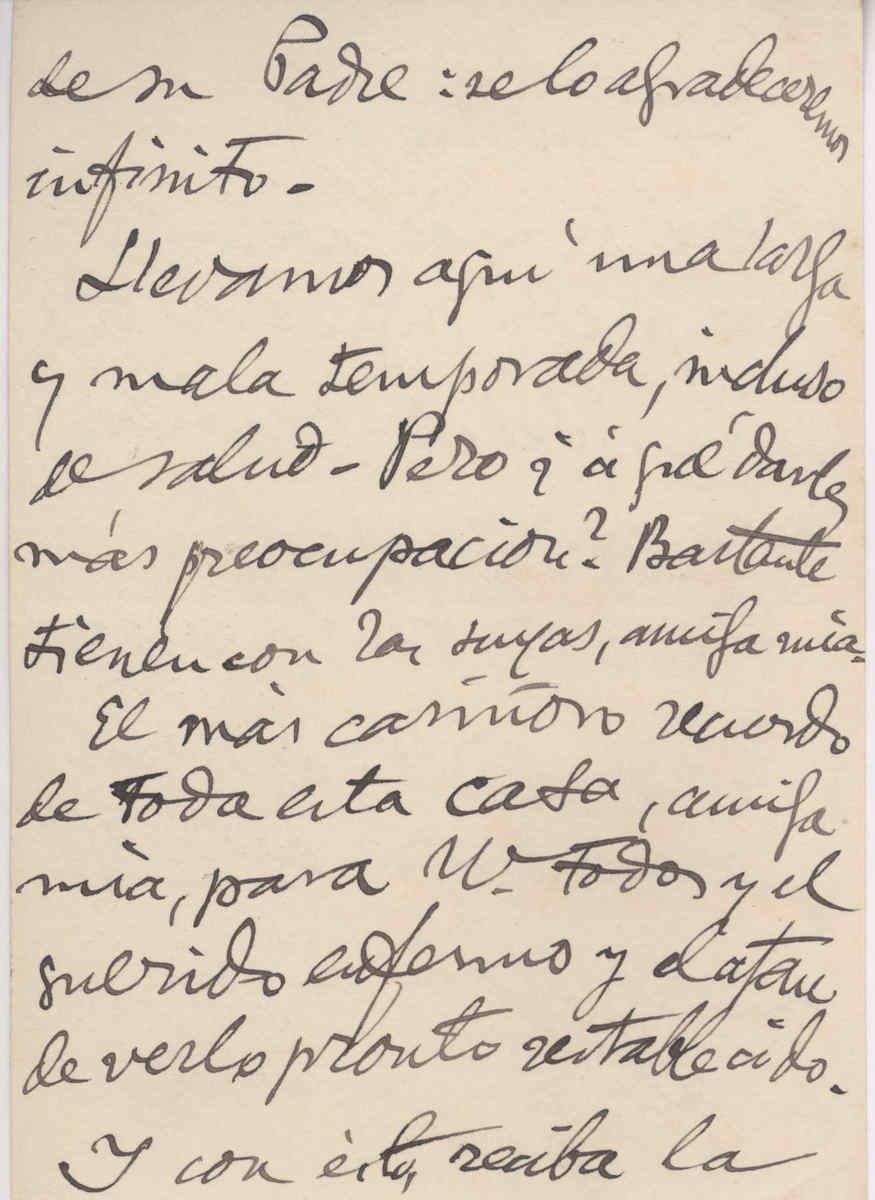 de su Padre: se lo agradeceremos
infinito -
Llevamos aquí una larga
y mala temporada, incluso
de salud - Pero ¿ á qué darles
más preocupacion? Bastante
tienen con las suyas, amiga mia -
El más cariñoso recuerdo
de toda esta casa, amiga
mia, para Vv. todos y el
querido enfermo y el afan
de verlo pronto restablecido.
Y con ésto, reciba la